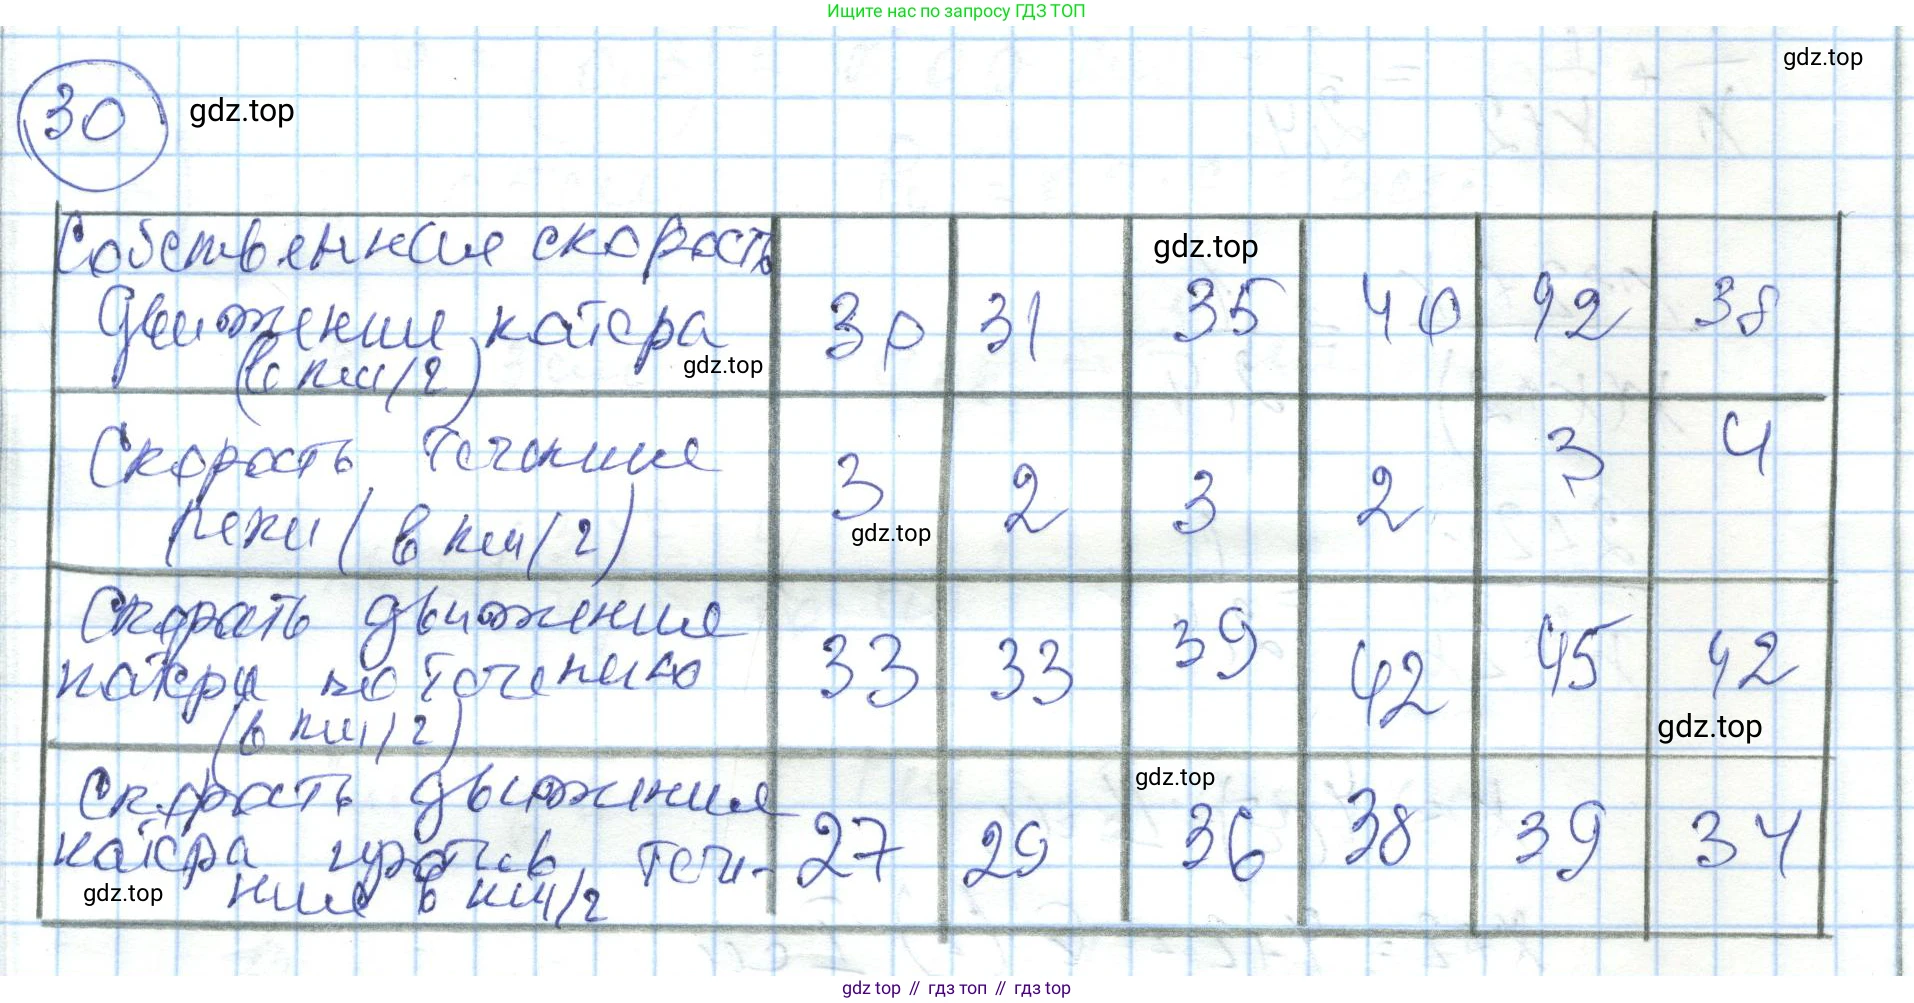 Ищите нас по запросу ГДЗ ТОП
gdz.top
30 gdz.top
Собственная скорость
движения катера
(в км/ч)
30 31 35 40 42 38
gdz.top
gdz.top
Скорость течения
реки (в км/ч)
3 2 3 2 3 4
gdz.top
Скорость движения
катера по течению
(в км/ч)
33 33 39 42 45 42
gdz.top
Скорость движения
катера против тече-
ния в км/ч
27 29 36 38 39 34
gdz.top
gdz.top
gdz top // гдз топ // gdz top